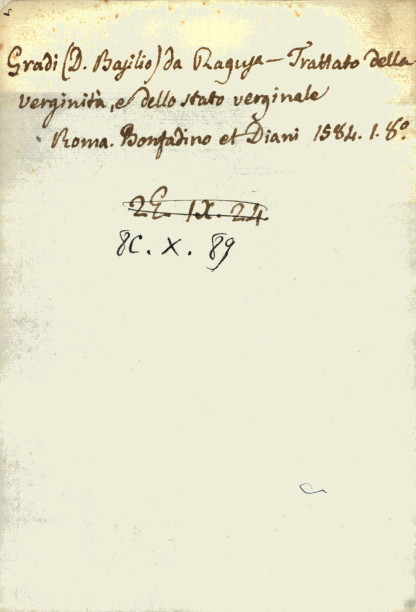 Gradi (D. Basilio) da Ragusa — Trattato della
verginità, e dello stato verginale
Roma. Bonfadino et Diani 1584. 1. 8.º
2E. IX. 24
8C. X. 89